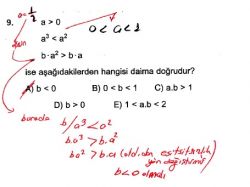 a = 1/2
9. a > 0
0 < a < 1
olsun
a³ < a²
b·a² > b·a
ise aşağıdakilerden hangisi daima doğrudur?
A) b < 0 B) 0 < b < 1 C) a.b > 1
D) b > 0 E) 1 < a.b < 2
burada b/ a³ < a²
b.a³ > b.a²
ba² > b.a (old.dan eşitsizlik
yön değiştirmiş)
b < 0 olmalı